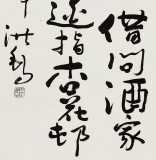 借问酒家
遥指杏花邨
洪